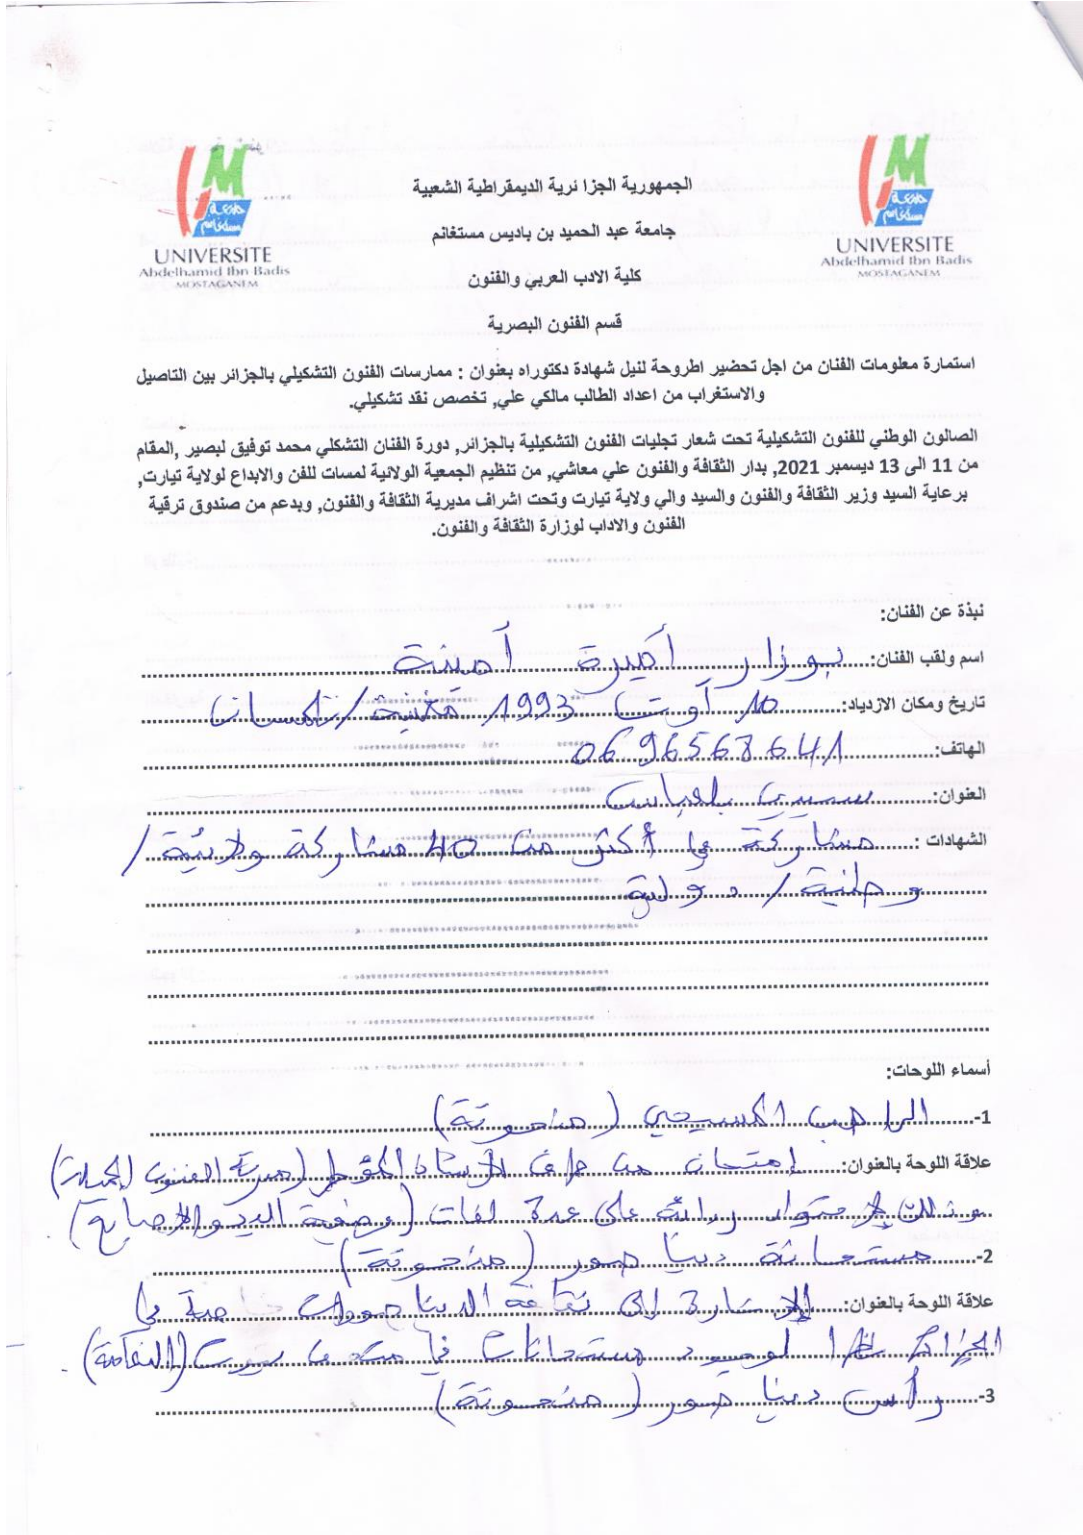 UNIVERSITE
Abdelhamid Ibn Badis
MOSTAGANEM
UNIVERSITE
Abdelhamid Ibn Badis
MOSTAGANEM
الجمهورية الجزا ئرية الديمقراطية الشعبية
جامعة عبد الحميد بن باديس مستغانم
كلية الادب العربي والفنون
قسم الفنون البصرية
استمارة معلومات الفنان من اجل تحضير اطروحة لنيل شهادة دكتوراه بعنوان : ممارسات الفنون التشكيلي بالجزائر بين التاصيل
والاستغراب من اعداد الطالب مالكي علي, تخصص نقد تشكيلي.
الصالون الوطني للفنون التشكيلية تحت شعار تجليات الفنون التشكيلية بالجزائر, دورة الفنان التشكلي محمد توفيق لبصير ,المقام
من 11 الى 13 ديسمبر 2021, بدار الثقافة والفنون علي معاشي, من تنظيم الجمعية الولائية لمسات للفن والابداع لولاية تيارت,
برعاية السيد وزير الثقافة والفنون والسيد والي ولاية تيارت وتحت اشراف مديرية الثقافة والفنون, وبدعم من صندوق ترقية
الفنون والاداب لوزارة الثقافة والفنون.
نبذة عن الفنان:
اسم ولقب الفنان: بوزار أميرة أمينة
تاريخ ومكان الازدياد: 10 أوت 1993 مغنية / تلمسان
الهاتف: 0696568641
العنوان: سيدي بلعباس
الشهادات : مشاركة في أكثر من 40 مشاركة ولائية /
وطنية / دولية
أسماء اللوحات:
1- الراهب المسيحي (منحوتة)
علاقة اللوحة بالعنوان: إمتحان من طرف الأستاذ المؤطر (مدرسة الفنون الجميلة)
وذلك لإحتواء ردائه على عدة لفات (وضعية اليد والأصابع)
2- مستحاثة دينا صور (منحوتة)
علاقة اللوحة بالعنوان: الإشارة إلى ثقافة الدينا صورات خاصة في
الجزائر نظرا لوجود مستحاثات في (النعامة)
3- رأس دينا صور (منحوتة)